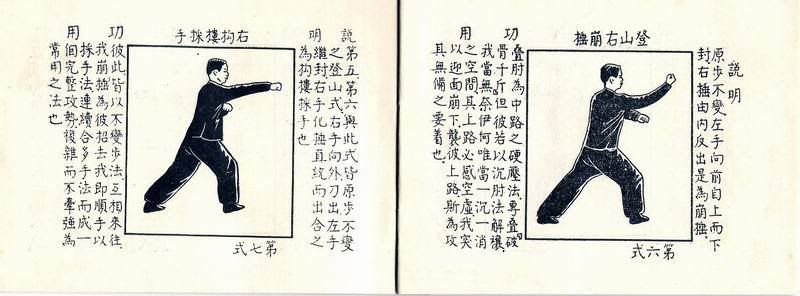 登山右崩捶
說明
原步不變左手向前自上而下
封右捶由內反出是為崩捶.
功用
疊肘為中路之硬壓法.專疊破
骨千斤但彼若以沉肘法解禳
我當無奈伊何唯當一沉一消
之空間其上路必感空虛我突
以迎面崩下襲彼上路斯為攻
其無備之要着也.
第六式
右抅摟採手
說明
第五第六與此式皆原步不變
之登山式右手向外刁出左手
繼封右手化捶直統而出合之
為抅摟採手也
功用
彼此皆以不變步法互相來往
我崩捶為彼招去我即順手以
採手法連續合多手法而成一
個完整攻勢複雜而不牽強為
常用之法也
第七式